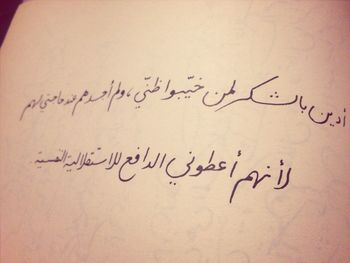 أدين بالشكر لمن خيّبوا ظنّي، ولم أجدهم عند حاجتي لهم
لأنهم أعطوني الدافع للاستقلالية النفسية